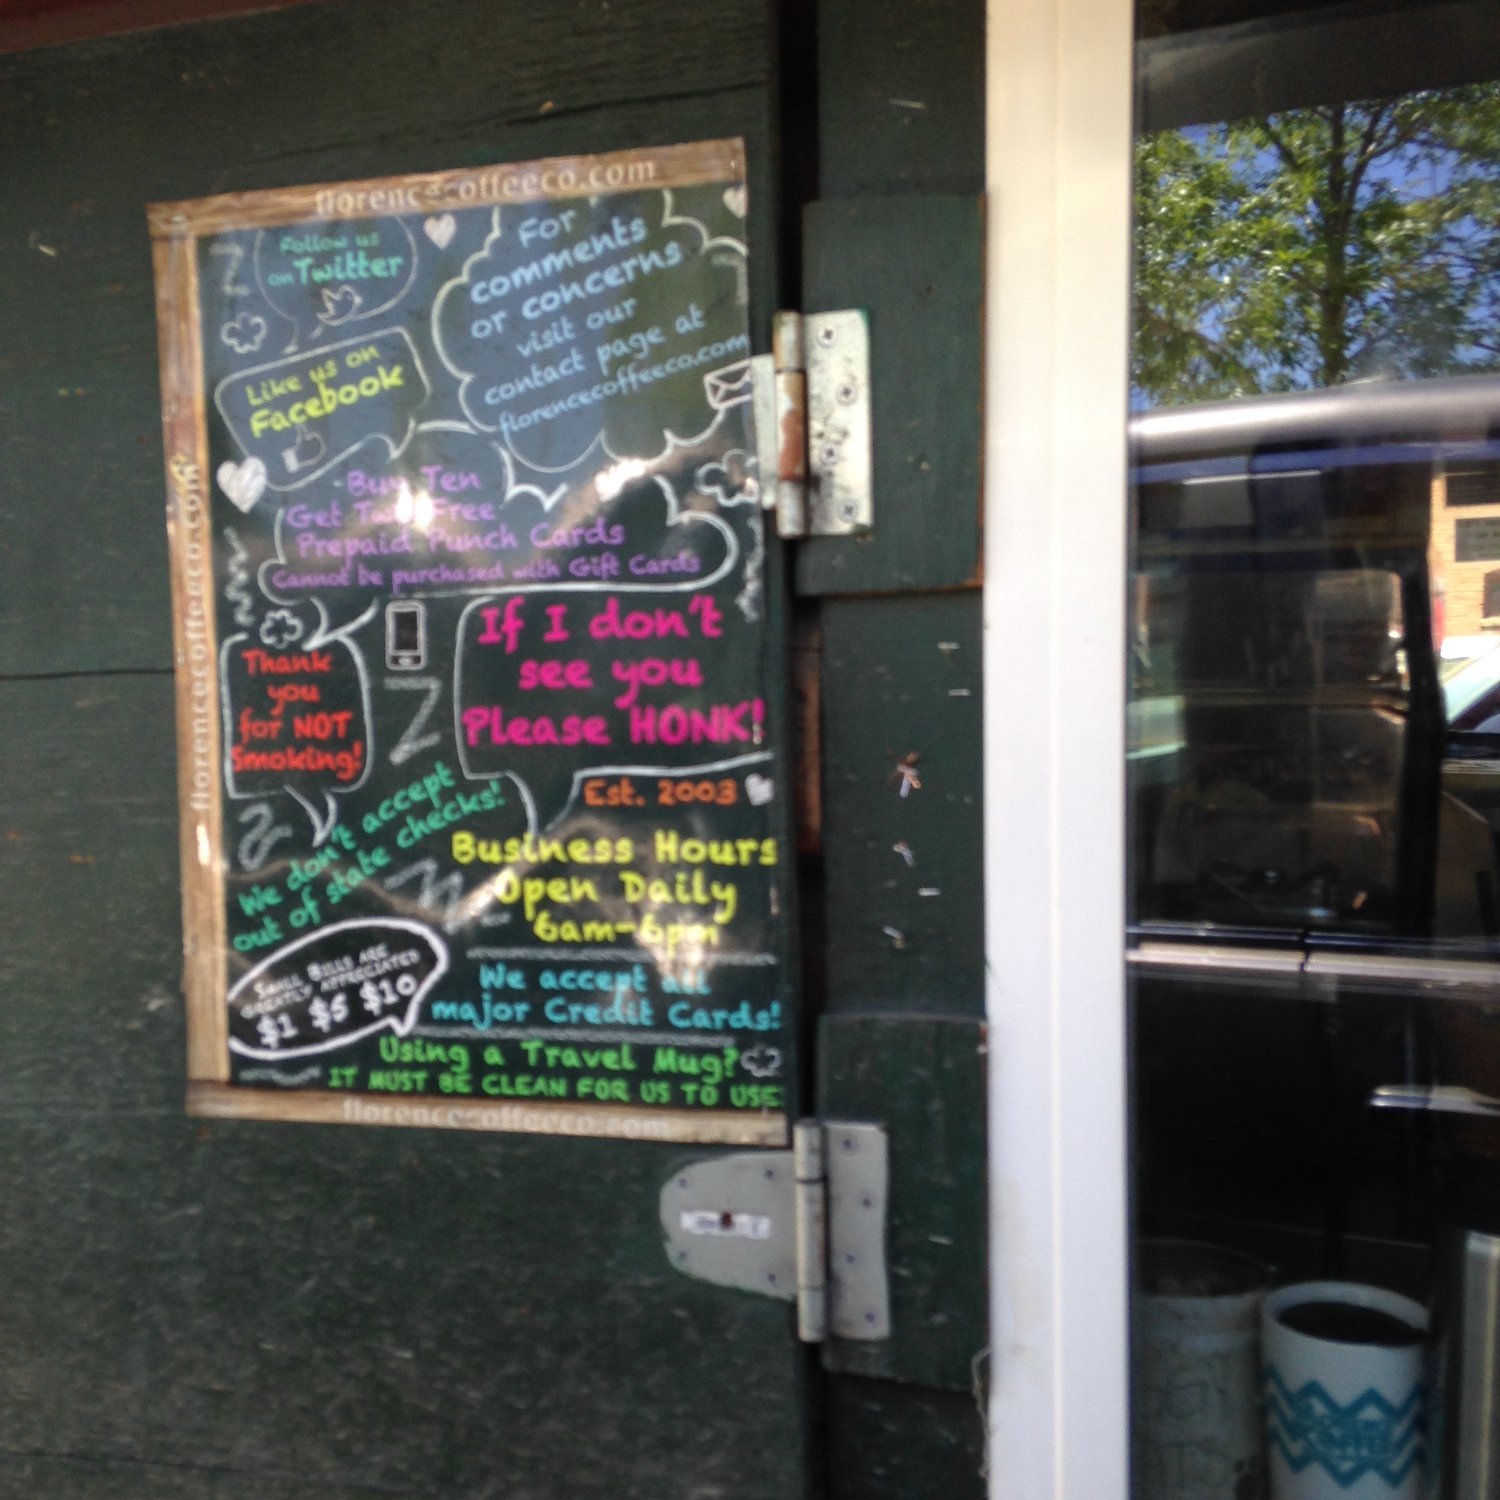 florencecoffeeco.com
Follow us
on Twitter
For
comments
or concerns
visit our
contact page at
florencecoffeeco.com
Like us on
Facebook
Buy Ten
Get Two Free
Prepaid Punch Cards
Cannot be purchased with Gift Cards
florencecoffeeco.com
Thank
you
for NOT
Smoking!
If I don't
see you
Please HONK!
We don't accept
out of state checks!
Est. 2003
Business Hours
Open Daily
6am-6pm
SMALL BILLS ARE
GREATLY APPRECIATED
$1 $5 $10
We accept all
major Credit Cards!
Using a Travel Mug?
IT MUST BE CLEAN FOR US TO USE
florencecoffeeco.com